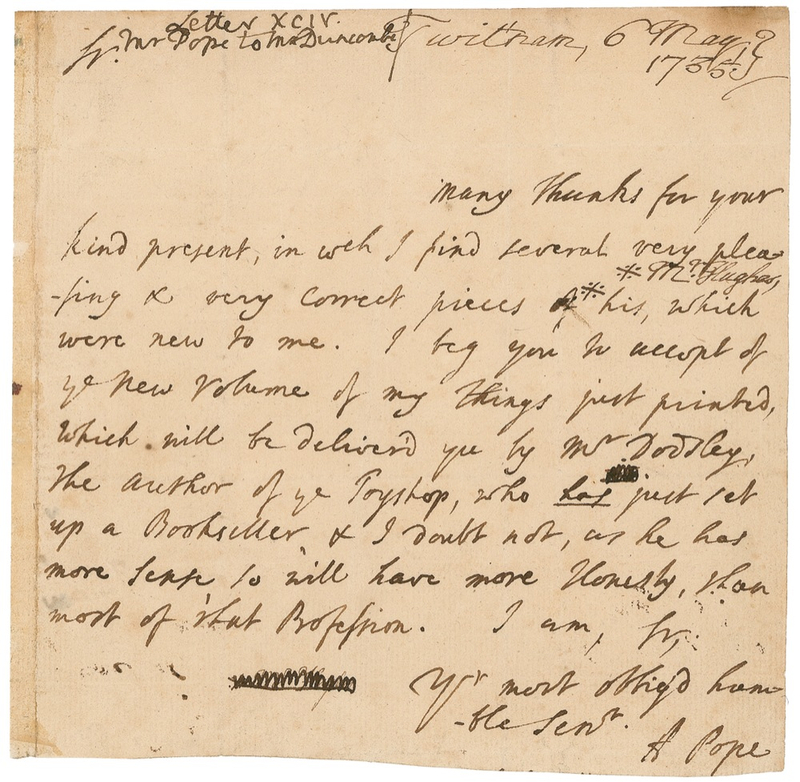 Letter XCIV.
Sr. Mr Pope to Mr Duncombe Twitnam, 6 May,
1735.
Many thanks for your
kind present, in wch I find several very plea-
* Mr. Hughes,
-sing & very correct pieces of * his, which
were new to me. I beg you to accept of
ye New Volume of my Things just printed,
which will be deliver'd you by Mr Dodsley,
the Author of ye Toyshop, who has just set
up a Bookseller & I doubt not, as he has
more Sense so will have more Honesty, than
most of that Profession. I am, Sr,
Yr most oblig'd hum-
-ble Servt.
A Pope